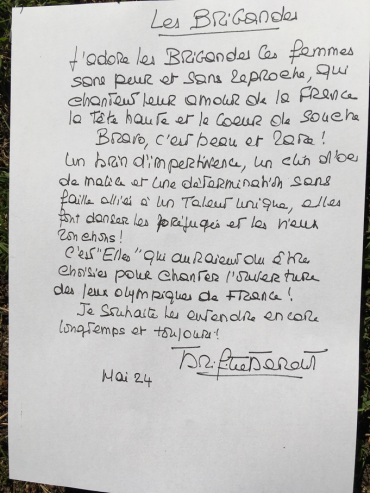 Les BRIGANDES
J'adore les BRIGANDES ces femmes
sans peur et sans reproche, qui
chantent leur amour de la France
la Tête haute et le Coeur de Souche
Bravo, c'est beau et rare !
Un brin d'impertinence, un clin d'oeil
de malice et une détermination sans
faille alliés à un Talent unique, elles
font danser les préjugés et les vieux
ronchons !
C'est "Elles" qui auraient dû être
choisies pour chanter l'ouverture
des Jeux Olympiques de France !
Je souhaite les entendre encore
longtemps et toujours !
Mai 24